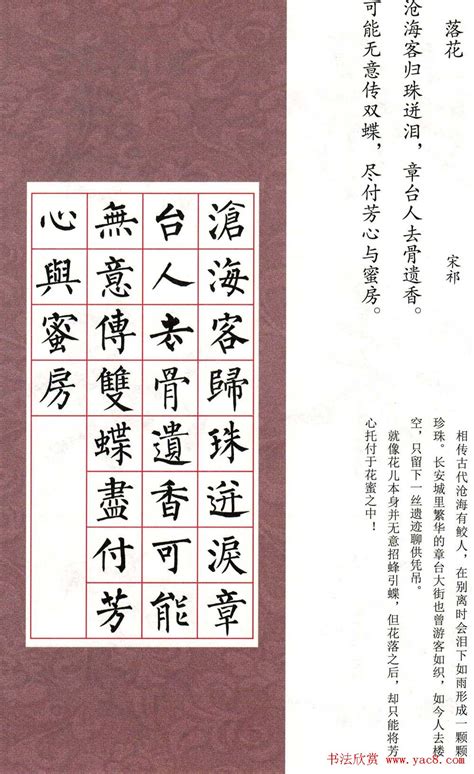 落花
宋祁
沧海客归珠迸泪，章台人去骨遗香。
可能无意传双蝶，尽付芳心与蜜房。
相传古代沧海有鲛人，在别离时会泪下如雨形成一颗颗
珍珠。长安城里繁华的章台大街也曾游客如织，如今人去楼
空，只留下一丝遗迹聊供凭吊。
就像花儿本身并无意招蜂引蝶，但花落之后，却只能将芳
心托付于花蜜之中！
滄海客歸珠迸淚章
台人去骨遺香可能
無意傳雙蝶盡付芳
心與蜜房
书法欣赏 www.yac8.com